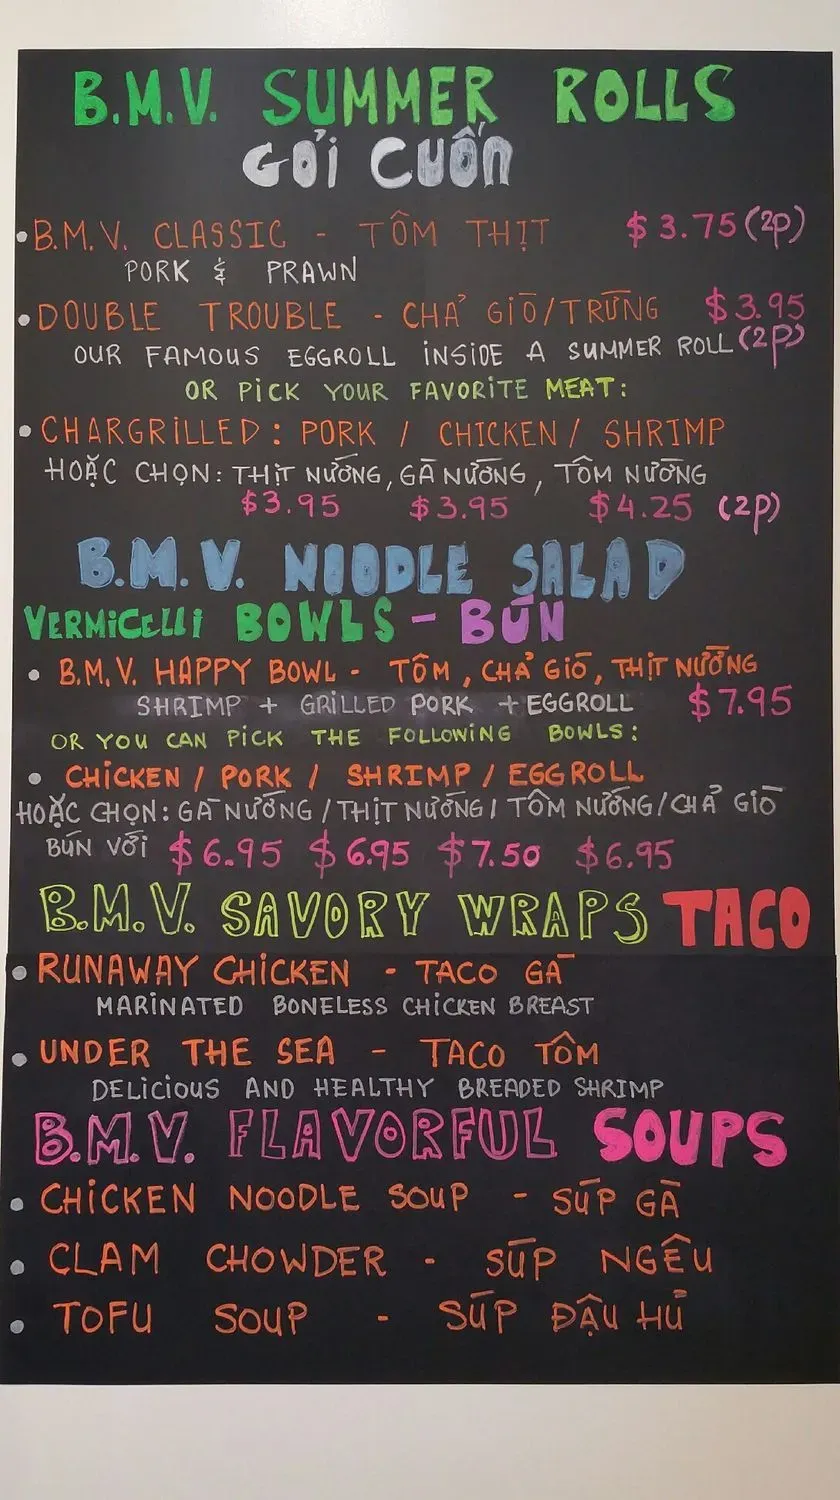 B.M.V. SUMMER ROLLS
GỎI CUỐN
• B.M.V. CLASSIC - TÔM THỊT $3.75 (2P)
PORK & PRAWN
• DOUBLE TROUBLE - CHẢ GIÒ/TRỨNG $3.95
OUR FAMOUS EGGROLL INSIDE A SUMMER ROLL (2P)
OR PICK YOUR FAVORITE MEAT:
• CHARGRILLED: PORK / CHICKEN / SHRIMP
HOẶC CHỌN: THỊT NƯỚNG, GÀ NƯỚNG, TÔM NƯỚNG
$3.95 $3.95 $4.25 (2P)
B.M.V. NOODLE SALAD
VERMICELLI BOWLS - BÚN
• B.M.V. HAPPY BOWL - TÔM, CHẢ GIÓ, THỊT NƯỚNG
SHRIMP + GRILLED PORK + EGGROLL $7.95
OR YOU CAN PICK THE FOLLOWING BOWLS:
• CHICKEN / PORK / SHRIMP / EGGROLL
HOẶC CHỌN: GÀ NƯỚNG / THỊT NƯỚNG / TÔM NƯỚNG / CHẢ GIÒ
BÚN VỚI $6.95 $6.95 $7.50 $6.95
B.M.V. SAVORY WRAPS TACO
• RUNAWAY CHICKEN - TACO GÀ
MARINATED BONELESS CHICKEN BREAST
• UNDER THE SEA - TACO TÔM
DELICIOUS AND HEALTHY BREADED SHRIMP
B.M.V. FLAVORFUL SOUPS
• CHICKEN NOODLE SOUP - SÚP GÀ
• CLAM CHOWDER - SÚP NGÊU
• TOFU SOUP - SÚP ĐẬU HỦ